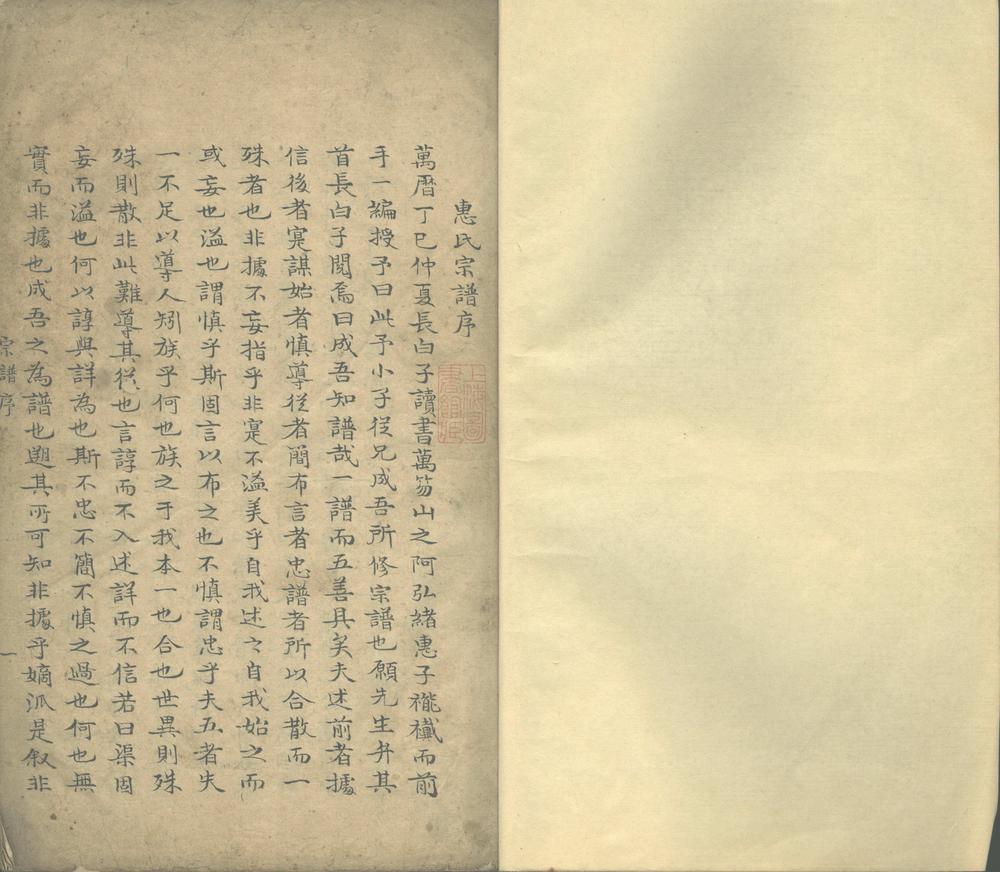 惠氏宗譜序
萬曆丁巳仲夏長白子讀書萬笏山之阿弘緒惠子襹襳而前
手一編授予曰此予小子從兄成吾所修宗譜也願先生弁其
首長白子閱焉曰成吾知譜哉一譜而五善具矣夫述前者據
信後者寔謀始者慎導從者簡布言者忠譜者所以合散而一
殊者也非據不妄指乎非寔不溢美乎自我述之自我始之而
或妄也溢也謂慎乎斯固言以布之也不慎謂忠乎夫五者失
一不足以導人矧族乎何也族之于我本一也合也世異則殊
殊則散非此難導其從也言諄而不入述詳而不信若曰渠固
妄而溢也何以諄與詳為也斯不忠不簡不慎之過也何也無
實而非據也成吾之為譜也遡其所可知非據乎嫡派是叙非
宗譜序
一
上海圖書館藏